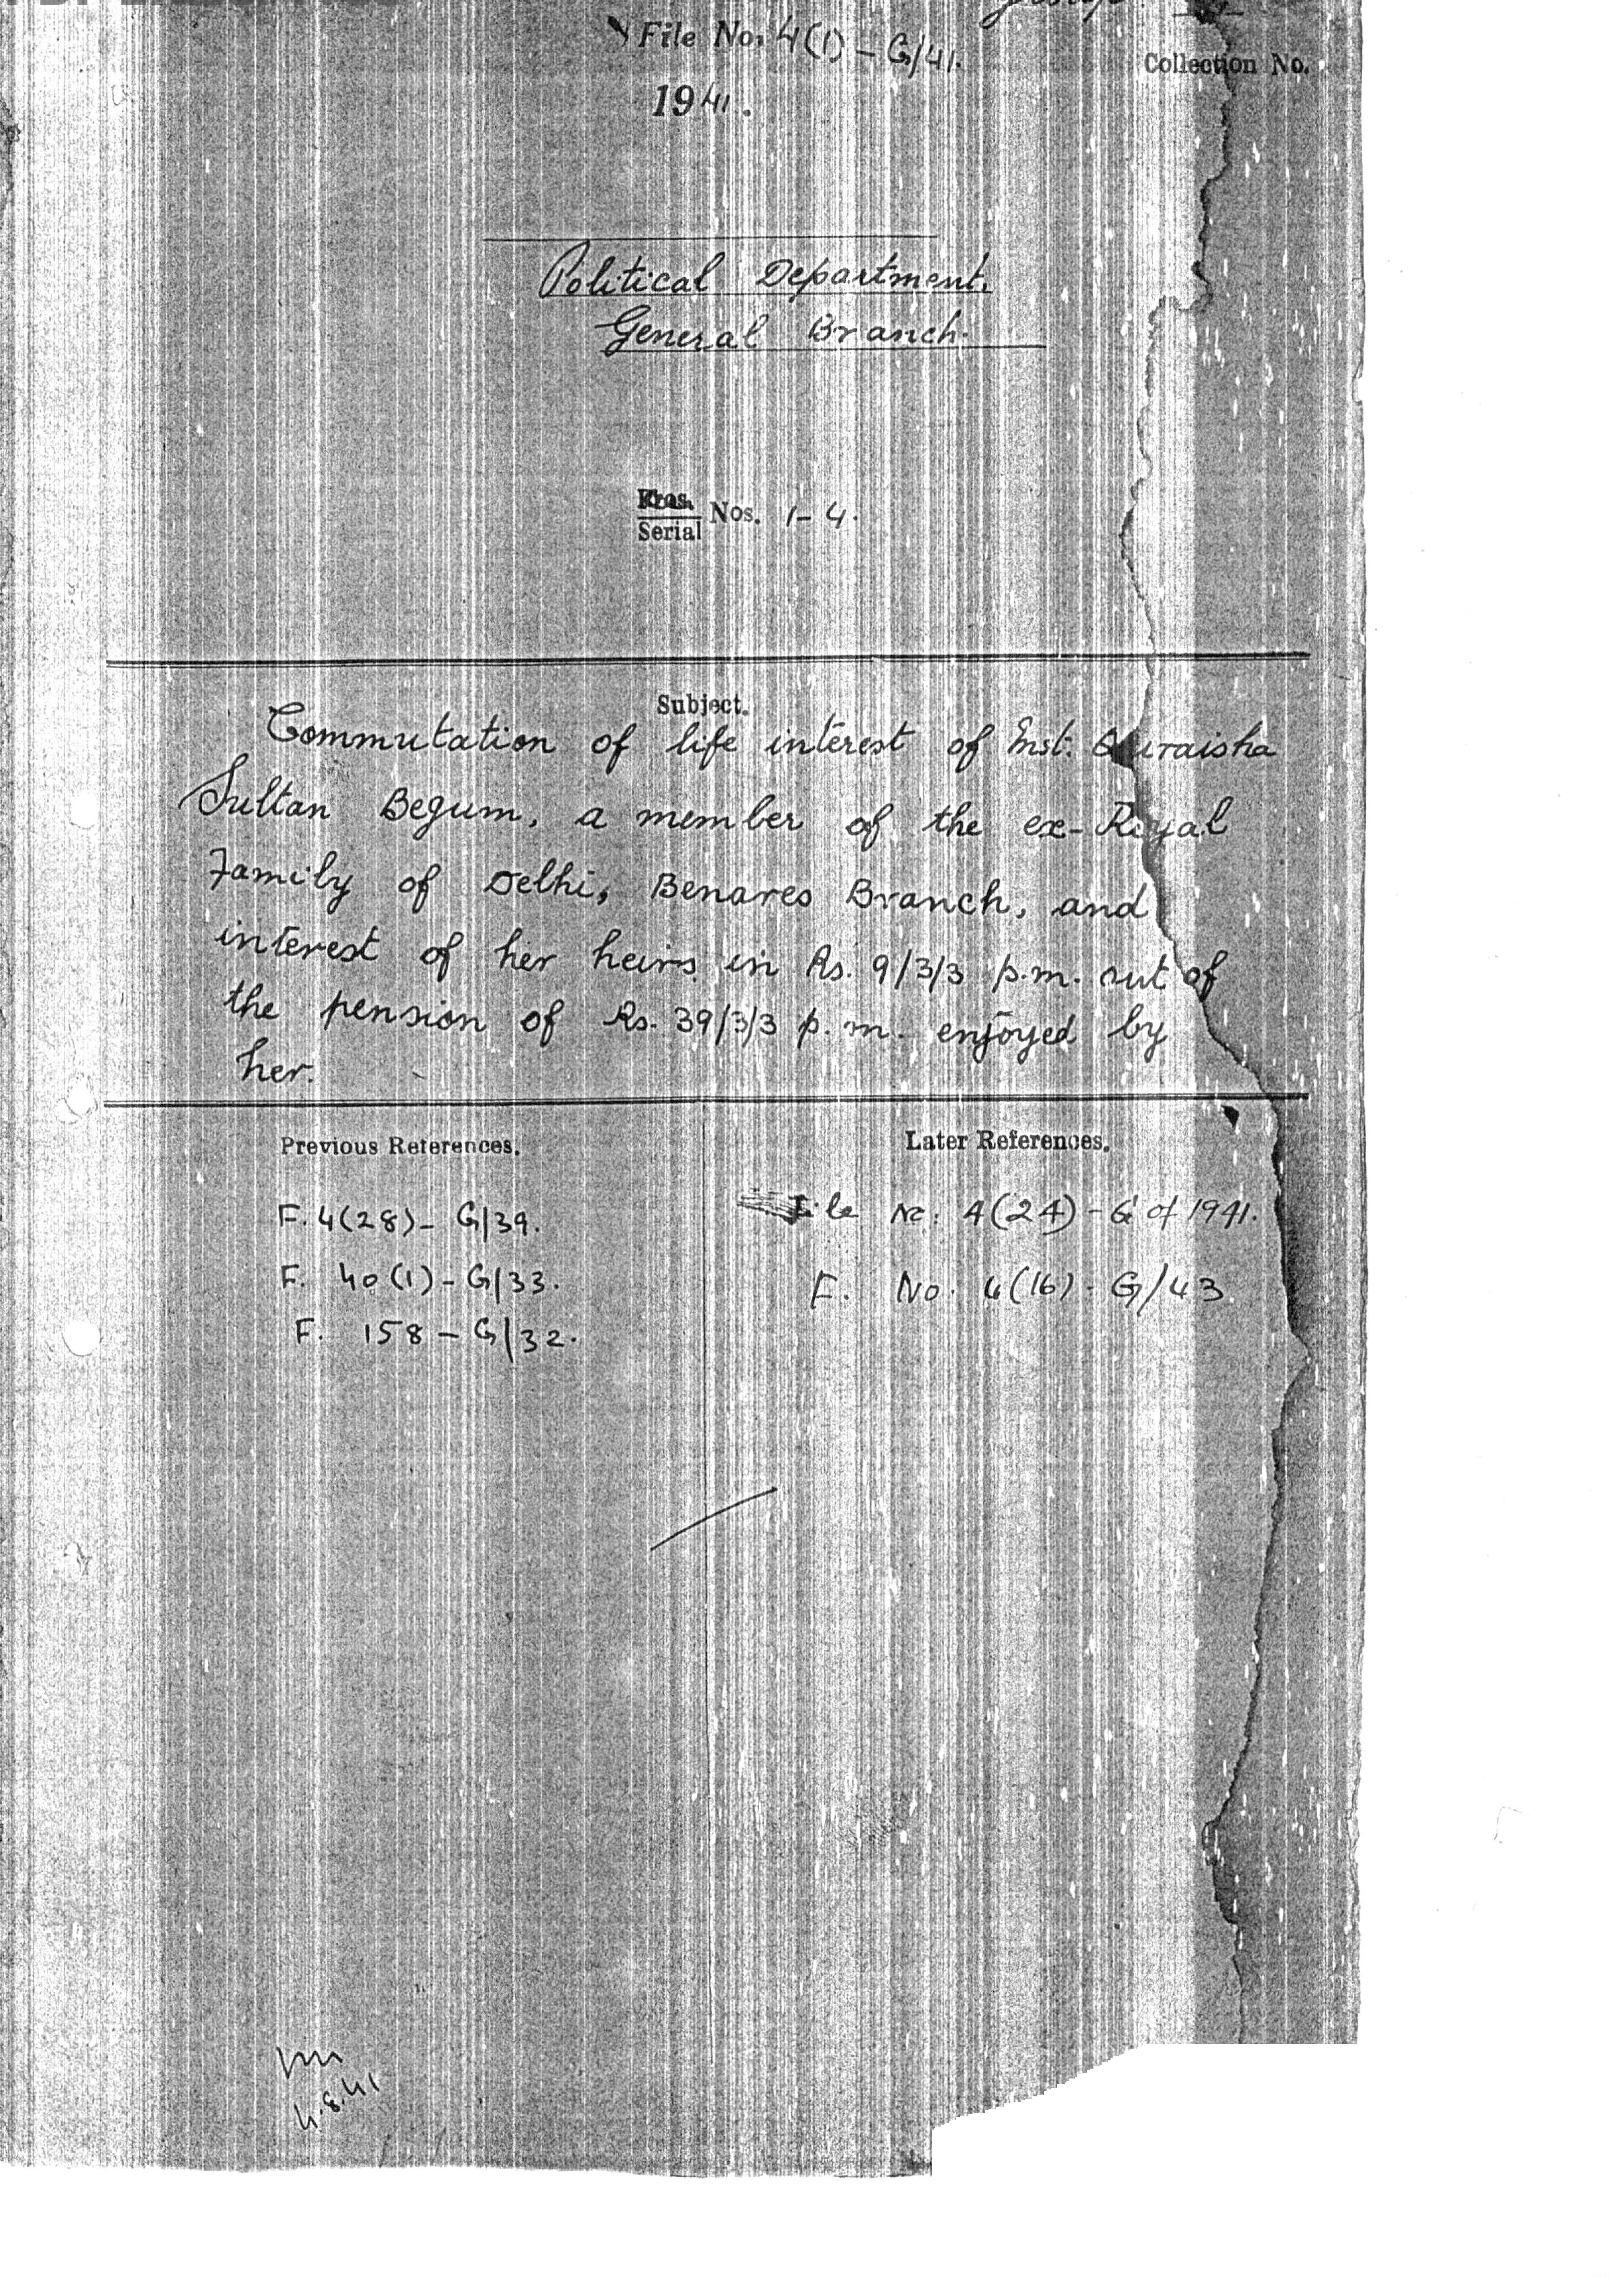 File No. 4(1) - G/41.
Collection No.
1941.
Political Department.
General Branch.
Serial Nos. 1-4.
Subject.
Commutation of life interest of Mst: Quraisha
Sultan Begum, a member of the ex-Royal
Family of Delhi, Benares Branch, and
interest of her heirs in Rs. 9/3/3 p.m. out of
the pension of Rs. 39/3/3 p.m. enjoyed by
her.
Previous References.
Later References.
F. 4(28) - G/39.
F. 40(1) - G/33.
F. 158 - G/32.
File No: 4(24) - G of 1941.
F. No. 4(16) - G/43
4.8.41